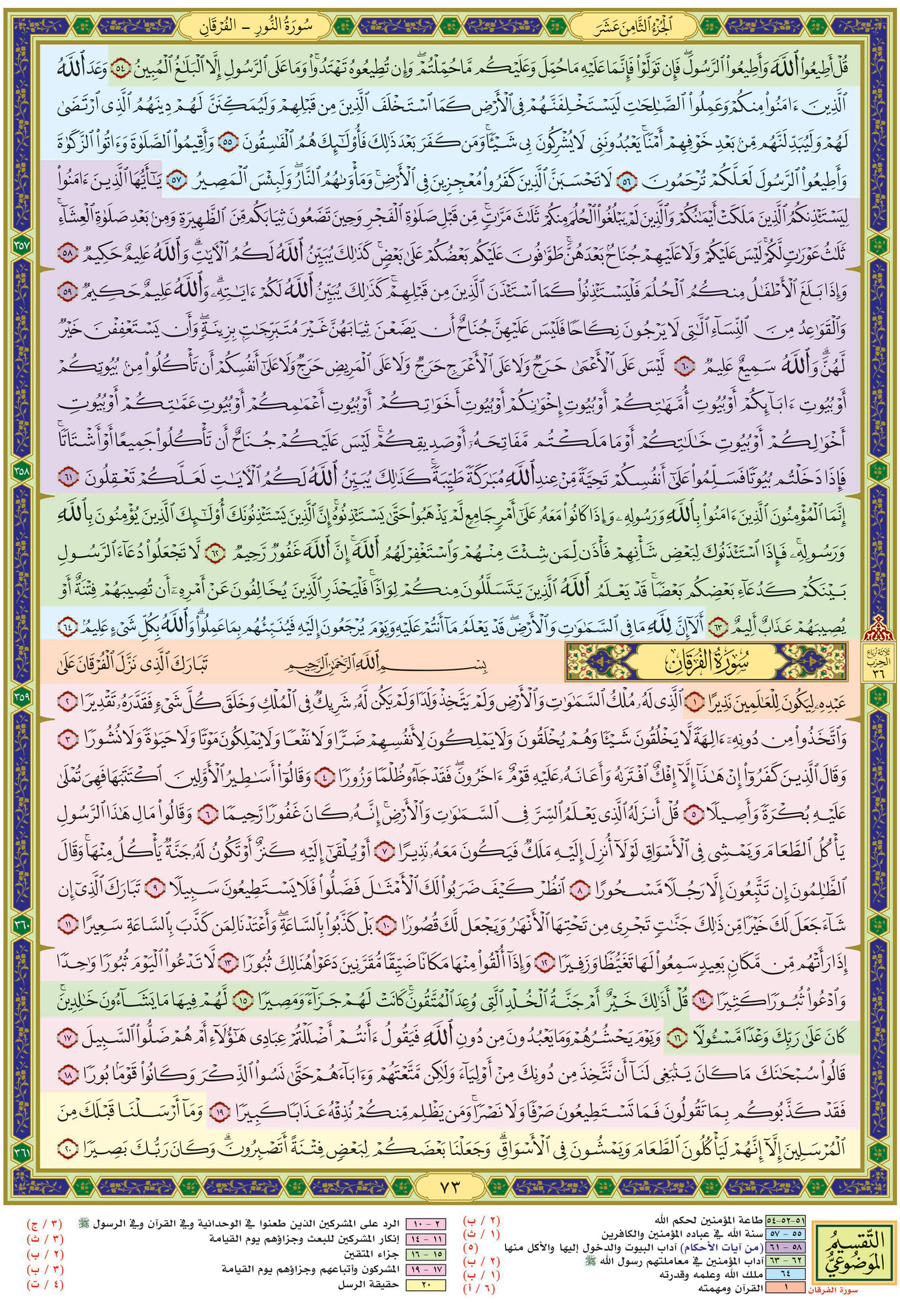 الجُزْءُ الثَّامِنَ عَشَرَ
سُورَةُ النُّورِ - الفُرْقَانِ
قُلْ أَطِيعُوا۟ ٱللَّهَ وَأَطِيعُوا۟ ٱلرَّسُولَ ۖ فَإِن تَوَلَّوْا۟ فَإِنَّمَا عَلَيْهِ مَا حُمِّلَ وَعَلَيْكُم مَّا حُمِّلْتُمْ ۖ وَإِن تُطِيعُوهُ تَهْتَدُوا۟ ۚ وَمَا عَلَى ٱلرَّسُولِ إِلَّا ٱلْبَلَٰغُ ٱلْمُبِينُ ٥٤ وَعَدَ ٱللَّهُ
ٱلَّذِينَ ءَامَنُوا۟ مِنكُمْ وَعَمِلُوا۟ ٱلصَّٰلِحَٰتِ لَيَسْتَخْلِفَنَّهُمْ فِى ٱلْأَرْضِ كَمَا ٱسْتَخْلَفَ ٱلَّذِينَ مِن قَبْلِهِمْ وَلَيُمَكِّنَنَّ لَهُمْ دِينَهُمُ ٱلَّذِى ٱرْتَضَىٰ
لَهُمْ وَلَيُبَدِّلَنَّهُم مِّنۢ بَعْدِ خَوْفِهِمْ أَمْنًا ۚ يَعْبُدُونَنِى لَا يُشْرِكُونَ بِى شَيْـًٔا ۚ وَمَن كَفَرَ بَعْدَ ذَٰلِكَ فَأُو۟لَٰٓئِكَ هُمُ ٱلْفَٰسِقُونَ ٥٥ وَأَقِيمُوا۟ ٱلصَّلَوٰةَ وَءَاتُوا۟ ٱلزَّكَوٰةَ
وَأَطِيعُوا۟ ٱلرَّسُولَ لَعَلَّكُمْ تُرْحَمُونَ ٥٦ لَا تَحْسَبَنَّ ٱلَّذِينَ كَفَرُوا۟ مُعْجِزِينَ فِى ٱلْأَرْضِ ۚ وَمَأْوَىٰهُمُ ٱلنَّارُ ۖ وَلَبِئْسَ ٱلْمَصِيرُ ٥٧ يَٰٓأَيُّهَا ٱلَّذِينَ ءَامَنُوا۟
لِيَسْتَـْٔذِنكُمُ ٱلَّذِينَ مَلَكَتْ أَيْمَٰنُكُمْ وَٱلَّذِينَ لَمْ يَبْلُغُوا۟ ٱلْحُلُمَ مِنكُمْ ثَلَٰثَ مَرَّٰتٍ ۚ مِّن قَبْلِ صَلَوٰةِ ٱلْفَجْرِ وَحِينَ تَضَعُونَ ثِيَابَكُم مِّنَ ٱلظَّهِيرَةِ وَمِنۢ بَعْدِ صَلَوٰةِ ٱلْعِشَآءِ ۚ
ثَلَٰثُ عَوْرَٰتٍ لَّكُمْ ۚ لَيْسَ عَلَيْكُمْ وَلَا عَلَيْهِمْ جُنَاحٌۢ بَعْدَهُنَّ ۚ طَوَّٰفُونَ عَلَيْكُم بَعْضُكُمْ عَلَىٰ بَعْضٍ ۚ كَذَٰلِكَ يُبَيِّنُ ٱللَّهُ لَكُمُ ٱلْءَايَٰتِ ۗ وَٱللَّهُ عَلِيمٌ حَكِيمٌ ٥٨
وَإِذَا بَلَغَ ٱلْأَطْفَٰلُ مِنكُمُ ٱلْحُلُمَ فَلْيَسْتَـْٔذِنُوا۟ كَمَا ٱسْتَـْٔذَنَ ٱلَّذِينَ مِن قَبْلِهِمْ ۚ كَذَٰلِكَ يُبَيِّنُ ٱللَّهُ لَكُمْ ءَايَٰتِهِۦ ۗ وَٱللَّهُ عَلِيمٌ حَكِيمٌ ٥٩
وَٱلْقَوَٰعِدُ مِنَ ٱلنِّسَآءِ ٱلَّٰتِى لَا يَرْجُونَ نِكَاحًا فَلَيْسَ عَلَيْهِنَّ جُنَاحٌ أَن يَضَعْنَ ثِيَابَهُنَّ غَيْرَ مُتَبَرِّجَٰتٍۭ بِزِينَةٍ ۖ وَأَن يَسْتَعْفِفْنَ خَيْرٌ
لَّهُنَّ ۗ وَٱللَّهُ سَمِيعٌ عَلِيمٌ ٦٠ لَّيْسَ عَلَى ٱلْأَعْمَىٰ حَرَجٌ وَلَا عَلَى ٱلْأَعْرَجِ حَرَجٌ وَلَا عَلَى ٱلْمَرِيضِ حَرَجٌ وَلَا عَلَىٰٓ أَنفُسِكُمْ أَن تَأْكُلُوا۟ مِنۢ بُيُوتِكُمْ
أَوْ بُيُوتِ ءَابَآئِكُمْ أَوْ بُيُوتِ أُمَّهَٰتِكُمْ أَوْ بُيُوتِ إِخْوَٰنِكُمْ أَوْ بُيُوتِ أَخَوَٰتِكُمْ أَوْ بُيُوتِ أَعْمَٰمِكُمْ أَوْ بُيُوتِ عَمَّٰتِكُمْ أَوْ بُيُوتِ
أَخْوَٰلِكُمْ أَوْ بُيُوتِ خَٰلَٰتِكُمْ أَوْ مَا مَلَكْتُم مَّفَاتِحَهُۥٓ أَوْ صَدِيقِكُمْ ۚ لَيْسَ عَلَيْكُمْ جُنَاحٌ أَن تَأْكُلُوا۟ جَمِيعًا أَوْ أَشْتَاتًا ۚ
فَإِذَا دَخَلْتُم بُيُوتًا فَسَلِّمُوا۟ عَلَىٰٓ أَنفُسِكُمْ تَحِيَّةً مِّنْ عِندِ ٱللَّهِ مُبَٰرَكَةً طَيِّبَةً ۚ كَذَٰلِكَ يُبَيِّنُ ٱللَّهُ لَكُمُ ٱلْءَايَٰتِ لَعَلَّكُمْ تَعْقِلُونَ ٦١
إِنَّمَا ٱلْمُؤْمِنُونَ ٱلَّذِينَ ءَامَنُوا۟ بِٱللَّهِ وَرَسُولِهِۦ وَإِذَا كَانُوا۟ مَعَهُۥ عَلَىٰٓ أَمْرٍ جَامِعٍ لَّمْ يَذْهَبُوا۟ حَتَّىٰ يَسْتَـْٔذِنُوهُ ۚ إِنَّ ٱلَّذِينَ يَسْتَـْٔذِنُونَكَ أُو۟لَٰٓئِكَ ٱلَّذِينَ يُؤْمِنُونَ بِٱللَّهِ
وَرَسُولِهِۦ ۚ فَإِذَا ٱسْتَـْٔذَنُوكَ لِبَعْضِ شَأْنِهِمْ فَأْذَن لِّمَن شِئْتَ مِنْهُمْ وَٱسْتَغْفِرْ لَهُمُ ٱللَّهَ ۚ إِنَّ ٱللَّهَ غَفُورٌ رَّحِيمٌ ٦٢ لَّا تَجْعَلُوا۟ دُعَآءَ ٱلرَّسُولِ
بَيْنَكُمْ كَدُعَآءِ بَعْضِكُم بَعْضًا ۚ قَدْ يَعْلَمُ ٱللَّهُ ٱلَّذِينَ يَتَسَلَّلُونَ مِنكُمْ لِوَاذًا ۚ فَلْيَحْذَرِ ٱلَّذِينَ يُخَالِفُونَ عَنْ أَمْرِهِۦٓ أَن تُصِيبَهُمْ فِتْنَةٌ أَوْ
يُصِيبَهُمْ عَذَابٌ أَلِيمٌ ٦٣ أَلَآ إِنَّ لِلَّهِ مَا فِى ٱلسَّمَٰوَٰتِ وَٱلْأَرْضِ ۖ قَدْ يَعْلَمُ مَآ أَنتُمْ عَلَيْهِ وَيَوْمَ يُرْجَعُونَ إِلَيْهِ فَيُنَبِّئُهُم بِمَا عَمِلُوا۟ ۗ وَٱللَّهُ بِكُلِّ شَىْءٍ عَلِيمٌۢ ٦٤
سُورَةُ الفُرْقَانِ بِسْمِ ٱللَّهِ ٱلرَّحْمَٰنِ ٱلرَّحِيمِ تَبَارَكَ ٱلَّذِى نَزَّلَ ٱلْفُرْقَانَ عَلَىٰ
عَبْدِهِۦ لِيَكُونَ لِلْعَٰلَمِينَ نَذِيرًا ١ ٱلَّذِى لَهُۥ مُلْكُ ٱلسَّمَٰوَٰتِ وَٱلْأَرْضِ وَلَمْ يَتَّخِذْ وَلَدًا وَلَمْ يَكُن لَّهُۥ شَرِيكٌ فِى ٱلْمُلْكِ وَخَلَقَ كُلَّ شَىْءٍ فَقَدَّرَهُۥ تَقْدِيرًا ٢
وَٱتَّخَذُوا۟ مِن دُونِهِۦٓ ءَالِهَةً لَّا يَخْلُقُونَ شَيْـًٔا وَهُمْ يُخْلَقُونَ وَلَا يَمْلِكُونَ لِأَنفُسِهِمْ ضَرًّا وَلَا نَفْعًا وَلَا يَمْلِكُونَ مَوْتًا وَلَا حَيَوٰةً وَلَا نُشُورًا ٣
وَقَالَ ٱلَّذِينَ كَفَرُوٓا۟ إِنْ هَٰذَآ إِلَّآ إِفْكٌ ٱفْتَرَىٰهُ وَأَعَانَهُۥ عَلَيْهِ قَوْمٌ ءَاخَرُونَ ۖ فَقَدْ جَآءُو ظُلْمًا وَزُورًا ٤ وَقَالُوٓا۟ أَسَٰطِيرُ ٱلْأَوَّلِينَ ٱكْتَتَبَهَا فَهِىَ تُمْلَىٰ
عَلَيْهِ بُكْرَةً وَأَصِيلًا ٥ قُلْ أَنزَلَهُ ٱلَّذِى يَعْلَمُ ٱلسِّرَّ فِى ٱلسَّمَٰوَٰتِ وَٱلْأَرْضِ ۚ إِنَّهُۥ كَانَ غَفُورًا رَّحِيمًا ٦ وَقَالُوا۟ مَالِ هَٰذَا ٱلرَّسُولِ
يَأْكُلُ ٱلطَّعَامَ وَيَمْشِى فِى ٱلْأَسْوَاقِ ۙ لَوْلَآ أُنزِلَ إِلَيْهِ مَلَكٌ فَيَكُونَ مَعَهُۥ نَذِيرًا ٧ أَوْ يُلْقَىٰٓ إِلَيْهِ كَنزٌ أَوْ تَكُونُ لَهُۥ جَنَّةٌ يَأْكُلُ مِنْهَا ۚ وَقَالَ
ٱلظَّٰلِمُونَ إِن تَتَّبِعُونَ إِلَّا رَجُلًا مَّسْحُورًا ٨ ٱنظُرْ كَيْفَ ضَرَبُوا۟ لَكَ ٱلْأَمْثَٰلَ فَضَلُّوا۟ فَلَا يَسْتَطِيعُونَ سَبِيلًا ٩ تَبَارَكَ ٱلَّذِىٓ إِن
شَآءَ جَعَلَ لَكَ خَيْرًا مِّن ذَٰلِكَ جَنَّٰتٍ تَجْرِى مِن تَحْتِهَا ٱلْأَنْهَٰرُ وَيَجْعَل لَّكَ قُصُورًۢا ١٠ بَلْ كَذَّبُوا۟ بِٱلسَّاعَةِ ۖ وَأَعْتَدْنَا لِمَن كَذَّبَ بِٱلسَّاعَةِ سَعِيرًا ١١
إِذَا رَأَتْهُم مِّن مَّكَانٍۭ بَعِيدٍ سَمِعُوا۟ لَهَا تَغَيُّظًا وَزَفِيرًا ١٢ وَإِذَآ أُلْقُوا۟ مِنْهَا مَكَانًا ضَيِّقًا مُّقَرَّنِينَ دَعَوْا۟ هُنَالِكَ ثُبُورًا ١٣ لَّا تَدْعُوا۟ ٱلْيَوْمَ ثُبُورًا وَٰحِدًا
وَٱدْعُوا۟ ثُبُورًا كَثِيرًا ١٤ قُلْ أَذَٰلِكَ خَيْرٌ أَمْ جَنَّةُ ٱلْخُلْدِ ٱلَّتِى وُعِدَ ٱلْمُتَّقُونَ ۚ كَانَتْ لَهُمْ جَزَآءً وَمَصِيرًا ١٥ لَّهُمْ فِيهَا مَا يَشَآءُونَ خَٰلِدِينَ ۚ
كَانَ عَلَىٰ رَبِّكَ وَعْدًا مَّسْـُٔولًا ١٦ وَيَوْمَ يَحْشُرُهُمْ وَمَا يَعْبُدُونَ مِن دُونِ ٱللَّهِ فَيَقُولُ ءَأَنتُمْ أَضْلَلْتُمْ عِبَادِى هَٰٓؤُلَآءِ أَمْ هُمْ ضَلُّوا۟ ٱلسَّبِيلَ ١٧
قَالُوا۟ سُبْحَٰنَكَ مَا كَانَ يَنۢبَغِى لَنَآ أَن نَّتَّخِذَ مِن دُونِكَ مِنْ أَوْلِيَآءَ وَلَٰكِن مَّتَّعْتَهُمْ وَءَابَآءَهُمْ حَتَّىٰ نَسُوا۟ ٱلذِّكْرَ وَكَانُوا۟ قَوْمًۢا بُورًا ١٨
فَقَدْ كَذَّبُوكُم بِمَا تَقُولُونَ فَمَا تَسْتَطِيعُونَ صَرْفًا وَلَا نَصْرًا ۚ وَمَن يَظْلِم مِّنكُمْ نُذِقْهُ عَذَابًا كَبِيرًا ١٩ وَمَآ أَرْسَلْنَا قَبْلَكَ مِنَ
ٱلْمُرْسَلِينَ إِلَّآ إِنَّهُمْ لَيَأْكُلُونَ ٱلطَّعَامَ وَيَمْشُونَ فِى ٱلْأَسْوَاقِ ۗ وَجَعَلْنَا بَعْضَكُمْ لِبَعْضٍ فِتْنَةً أَتَصْبِرُونَ ۗ وَكَانَ رَبُّكَ بَصِيرًا ٢٠
٣٥٧
٣٥٨
٣٥٩
٣٦٠
٣٦١
ثلاثة أرباع
الحزب
٣٦
٧٣
التَّقسِيمُ
المَوضُوعِيُّ
سورة الفرقان
٥١-٥٢-٥٤ طاعة المؤمنين لحكم الله (٢ / ب)
٥٥ - ٥٧ سنة الله في عباده المؤمنين والكافرين (١ / ث)
٥٨ - ٦١ (من آيات الأحكام) آداب البيوت والدخول إليها والأكل منها (٥)
٦٢ - ٦٣ آداب المؤمنين في معاملتهم رسول الله ﷺ (٢ / ب)
٦٤ ملك الله وعلمه وقدرته (١ / ب)
١ القرآن ومهمته (٦ / أ)
٢ - ١٠ الرد على المشركين الذين طعنوا في الوحدانية وفي القرآن وفي الرسول ﷺ (٣ / ج)
١١ - ١٤ إنكار المشركين للبعث وجزاؤهم يوم القيامة (٣ / ث)
١٥ - ١٦ جزاء المتقين (٢ / ب)
١٧ - ١٩ المشركون وأتباعهم وجزاؤهم يوم القيامة (٣ / ب)
٢٠ حقيقة الرسل (٤ / ت)